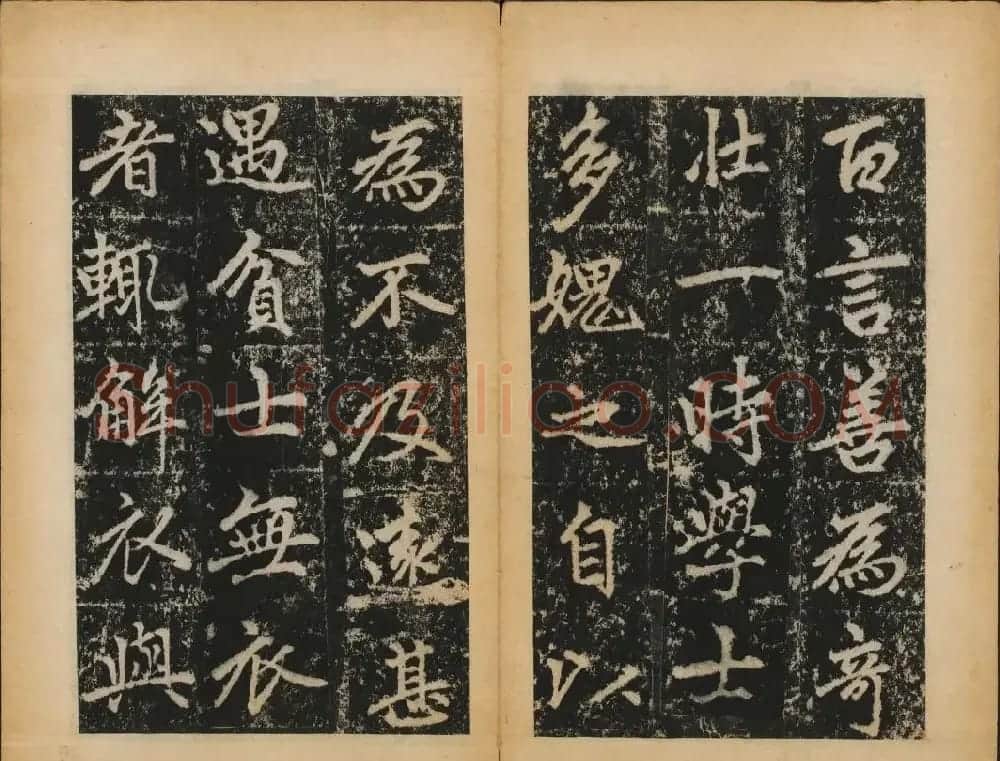 百言善為奇
壯一時學士
多媿之自以
為不及遠甚
遇貧士無衣
者輒解衣與
Shufaziliao.COM